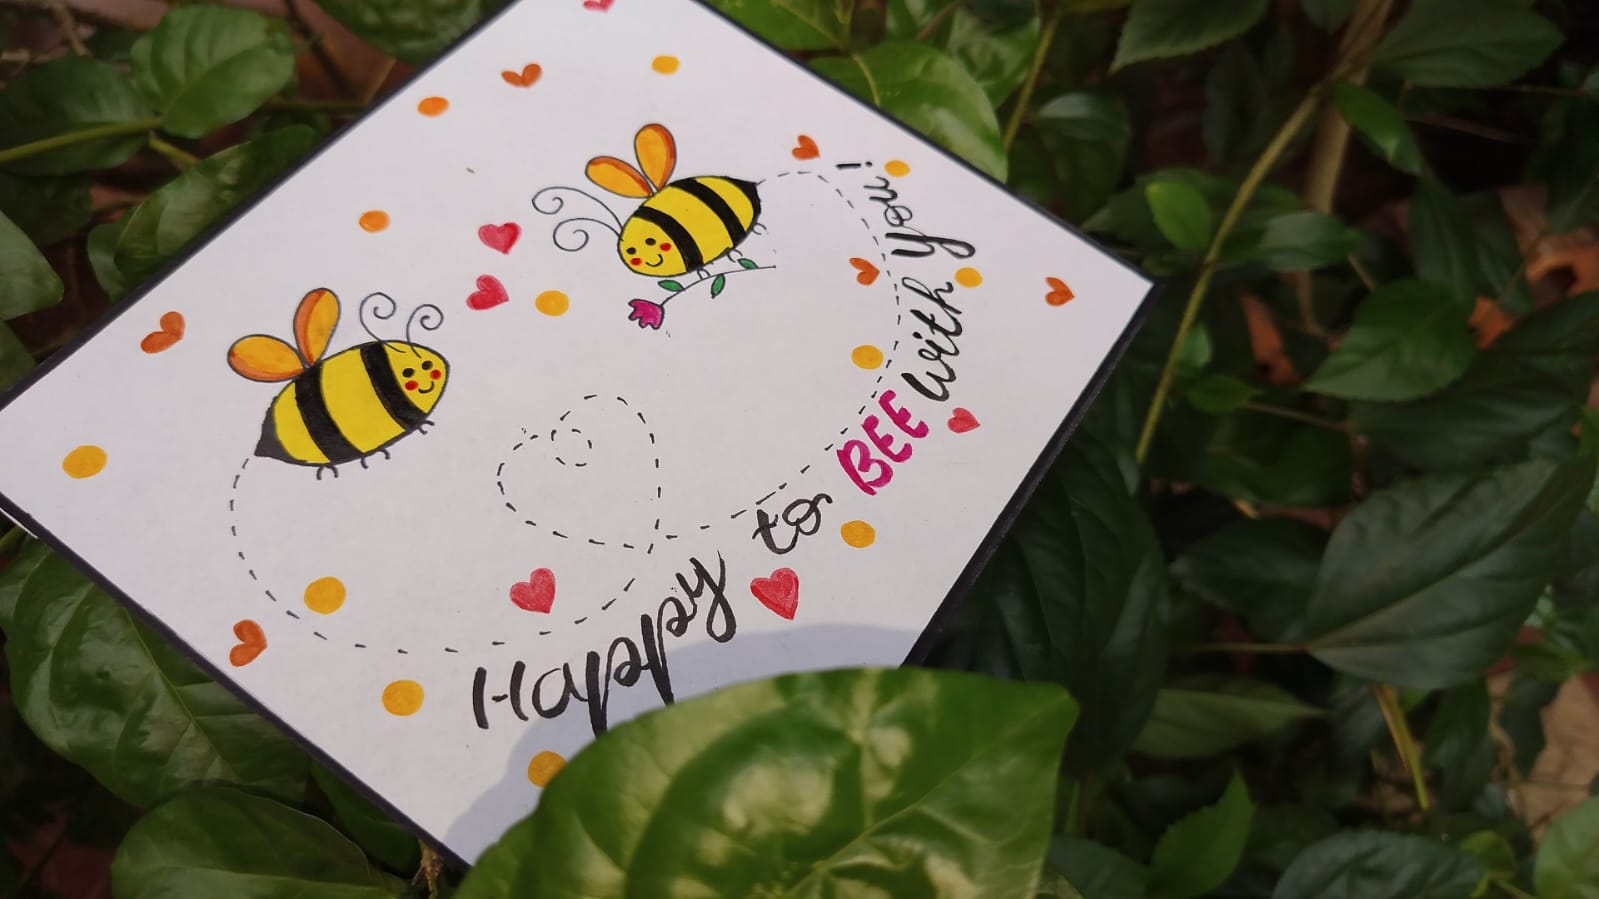 Happy to BEE with you!